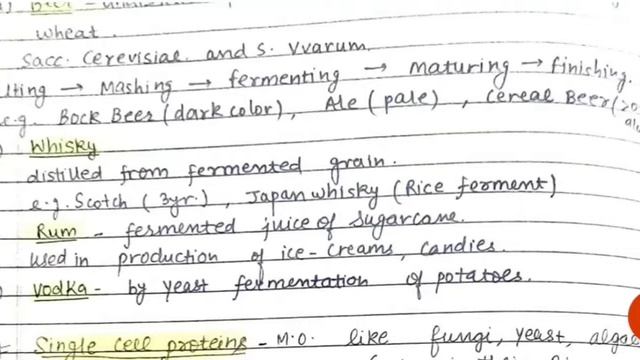 wheat.
Sacc. Cerevisiae and S. Vvarum.
lting → Mashing → fermenting → maturing → finishing.
e.g. Bock Beer (dark color), Ale (pale), Cereal Beer
Whisky
distilled from fermented grain.
e.g. Scotch (3yr.), Japan whisky (Rice ferment)
Rum - fermented juice of sugarcane.
used in production of ice-creams, candies.
vodka - by yeast fermentation of potatoes.
Single cell proteins - M.O. like fungi, yeast, algae